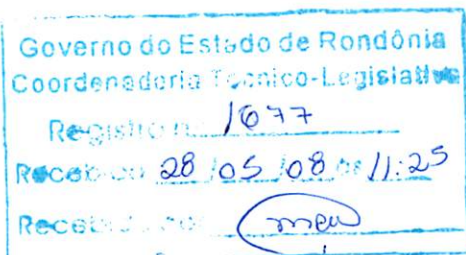 Governo do Estado de Rondônia
Coordenadoria Técnico-Legislativa
Registro nº 1677
Recebido 28/05/08 às 11:25
Recebido por